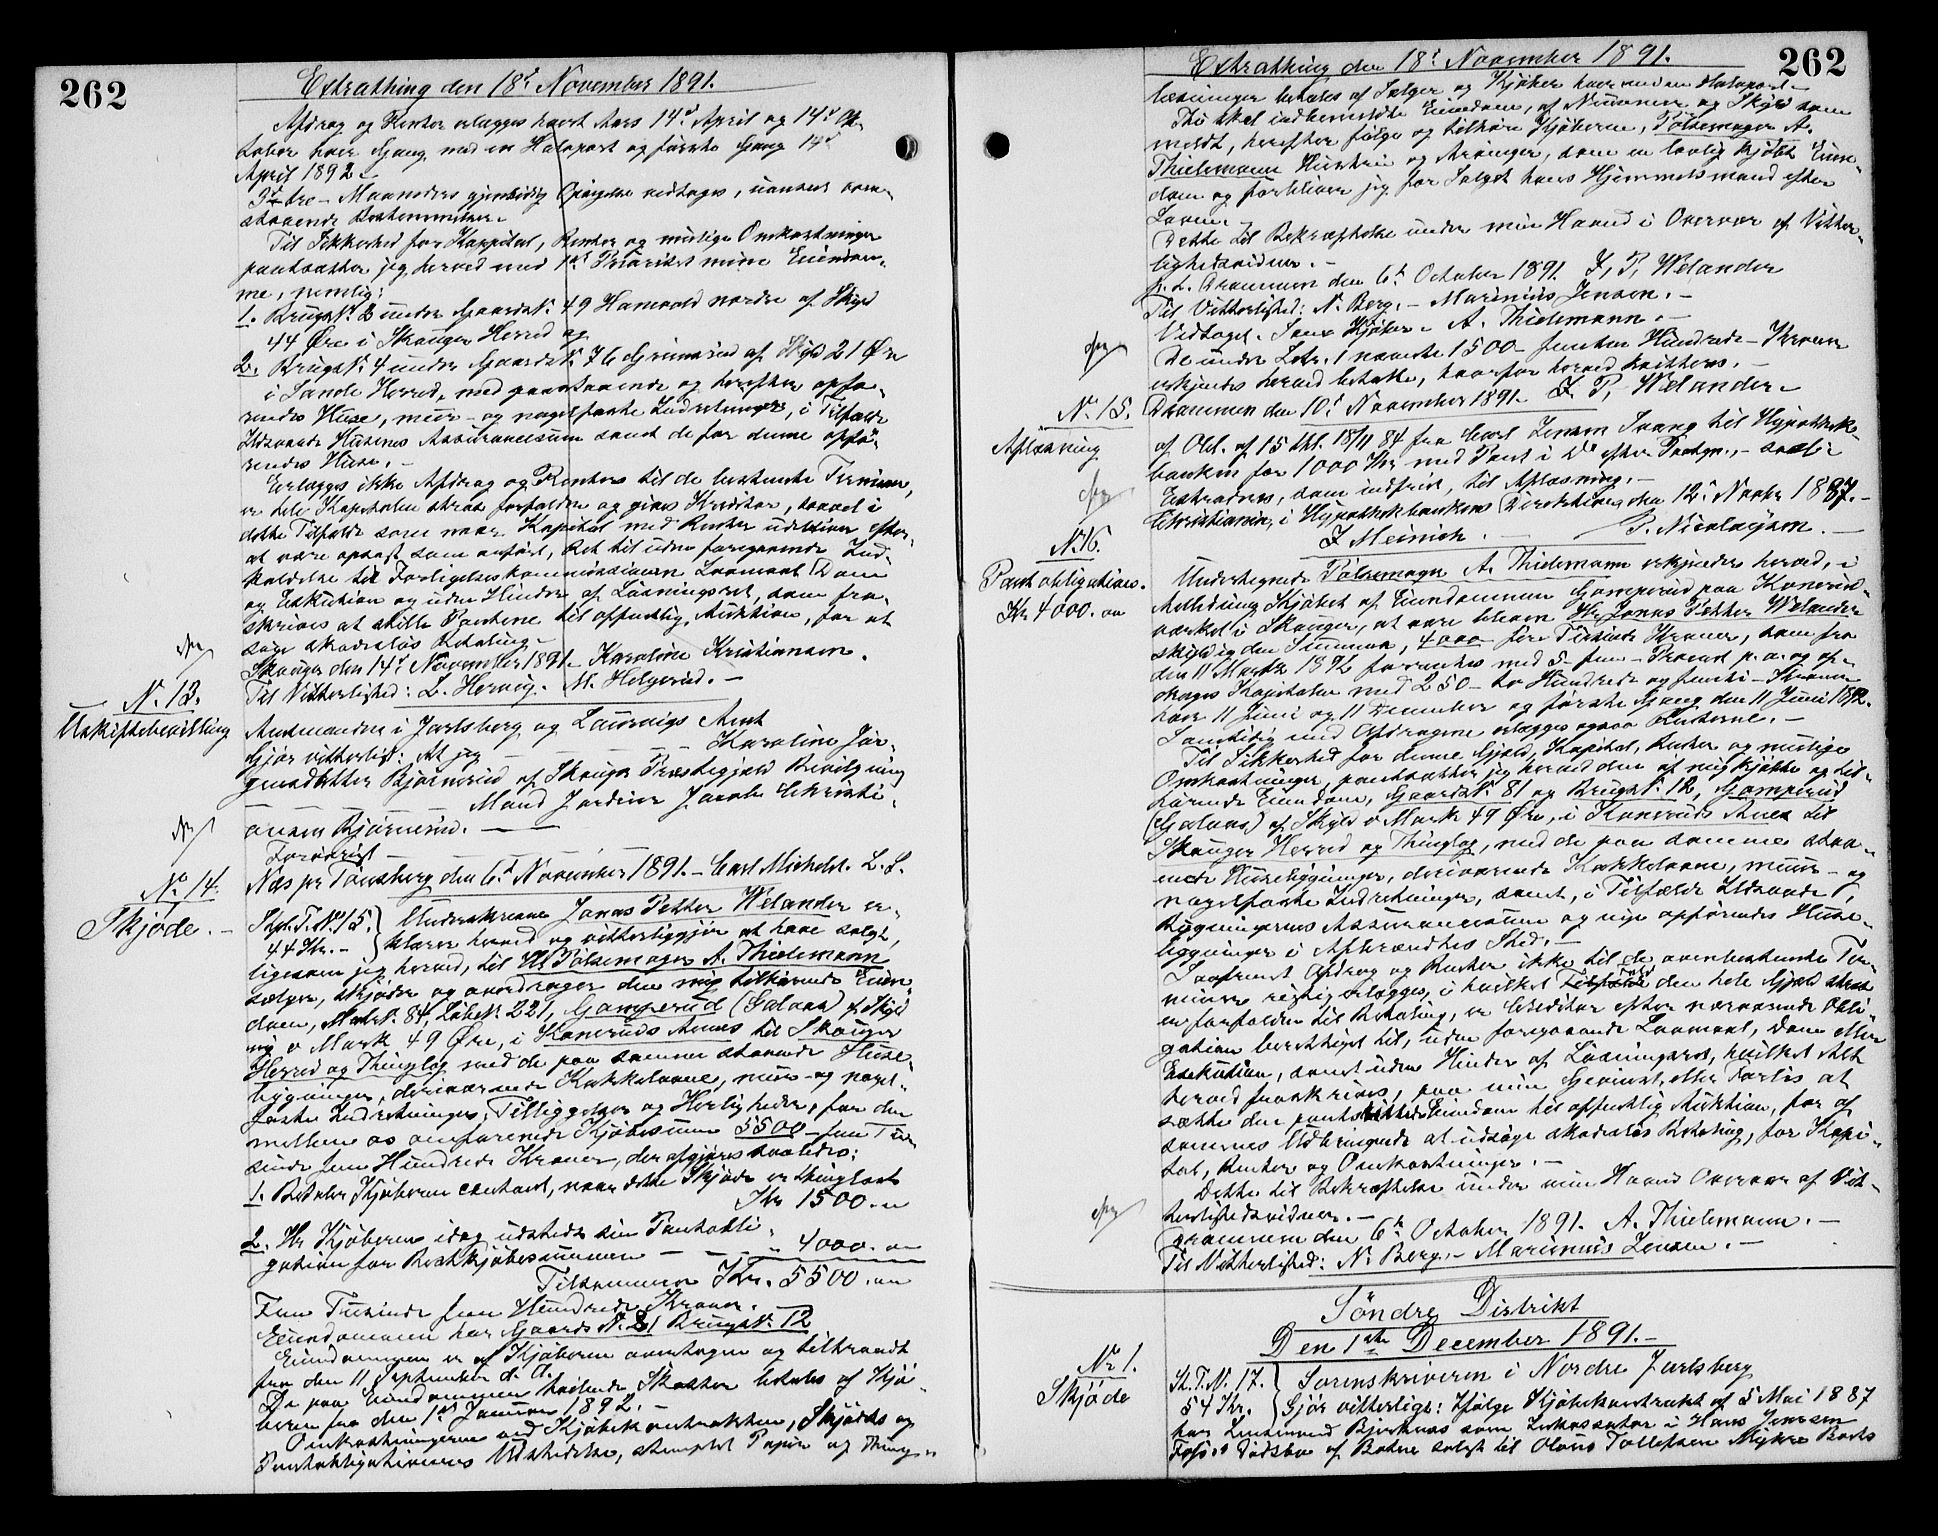 262
Extrathing den 18de November 1891.
Afdrag og Renter erlægges hvert Aars 14de April og 14de Ok-
tober hver Gang med en Halvpart og første Gang 14de
April 1892.-
3- tre - Maaneders gjensidig Opsigelse vedtages, uanseet oven-
staaende Bestemmelser.-
Til Sikkerhed for Kapital, Renter og mulige Omkostninger
pantsætter jeg herved med 1ste Prioritet mine Eiendom-
me, nemlig:
1. Brugs N. 2 under Gaards N. 49 Hanevold nordre af Skyld
44 Øre i Skouger Herred og
2. Brugs N. 4 under Gaards N. 76 Grimsrud af Skyld 21 Øre
i Sande Herred, med paastaaende og herefter opfø-
rendes Huse, muur- og nagelfaste Indretninger, i Tilfælde
Ildsvaade Husenes Assurancesum samt de for denne opfø-
rendes Huse.-
Erlægges ikke Afdrag og Renter til de bestemte Terminer,
er hele Kapitalen strax forfalden og gives Kreditor, saavel i
dette Tilfælde som naar Kapital med Renter udebliver efter
at være opsagt som anført, Ret til uden foregaaende Ind-
kaldelse til Forligelseskommissionen Lovmaal Dom
og Exekution og uden Hinder af Løsningsret, som fra-
skrives at stille Pantene til offentlig Auktion, for at
søge skadesløs Betaling.-
Skouger den 14de November 1891.- Karoline Kristiansen.
Til Vitterlighed: L. Hervig. M. Helgerud.-
N. 13.
Uskiftebevilling
Amtmanden i Jarlsberg og Laurvigs Amt
Gjør vitterligt: At jeg - - - Karoline Jør-
gensdatter Bjørnerud af Skouger Præstegjeld Bevilgning
Mand Jardine Jacob Christi-
ansen Bjørnerud.-
Forøvrigt
Næs pr Tønsberg den 6te November 1891.- Carl Michelet. L.S.
No 14.
Skjøde.-
Stpl. T. No 15.
44 Kr.-
Underskrevne Jonas Petter Welander er-
klærer herved og vitterliggjør at have solgt,
ligesom jeg herved, til Hr Pølsemager A. Thielemann
sælger, skjøder og overdrager den mig tilhørende Eien-
dom, Matr N. 84, Løbe N. 221, Gamperud (Galaas) af Skyld
ny 0 Mark 49 Øre, i Konneruds Annex til Skouger
Herred og Thinglag med de paa samme staaende Huse-
bygninger, deriværende Kakkelovne, muur- og nagel-
faste Indretninger, Tilliggelser og Herligheder, for den
mellem os omforenede Kjøbesum 5500 - fem Tu-
sinde fem Hundrede Kroner, der afgjøres saaledes:
1. Betaler Kjøberen contant, naar dette Skjøde er thinglæst
Kr 1500.-
2. Har Kjøberen idag udstedt sin Pantobli-
gation for Restkjøbesummen - - - " 4000.-
Tilsammen Kr. 5500.-
Fem Tusinde fem Hundrede Kroner.
Eiendommen har Gaards N. 81 Brugs N. 12
Eiendommen er af Kjøberen overtagen og tiltraadt
fra den 11 September d. A.
De paa Eiendommen hvilende Skatter betales af Kjø-
beren fra den 1ste Januar 1892.-
Omkostningerne ved Kjøbekontrakten, Skjødets og
Pantobligationens Udstedelse, stemplet Papir og Thing-
262
Extrathing den 18de November 1891.
læsninger betales af Sælger og Kjøber hver med en Halvpart.-
Thi skal indbemeldte Eiendom, af Nummer og Skyld som
meldt, herefter følge og tilhøre Kjøberen, Pølsemager A.
Thielemann Hustru og Arvinger, som en lovlig kjøbt Eien-
dom og forbliver jeg for Salget hans Hjemmelsmand efter
Loven.-
Dette til Bekræftelse under min Haand i Overvær af Vitter-
lighedsvidner.-
p. t. Drammen den 6te October 1891 J. P. Welander
Til Vitterlighed: N. Berg.- Marinius Jensen.-
Vedtaget. Som Kjøber.- A. Thielemann.-
De under Litr. 1 nævnte 1500- femten Hundrede- Kroner
erkjendes herved betalte, hvorfor herved kvitteres.-
Drammen den 10de November 1891.- J. P. Welander.-
No 15.
Afløsning
af Obl. af 15 thl. 18/11 84 fra Carl Jensen Svang til Hypothek-
banken for 1000 Kr med Pant i Do efter Pantegn.-
Extraderes, som indfriet, til Aflæsning.-
Christiania, i Hypothekbankens Direktion, den 12te Novbr 1887.-
J Meinich.- P. Nicolaysen.-
No 16.
Pantobligations.
Kr 4000. oo
Undertegnede Pølsemager A. Thielemann erkjender herved, i
Anledning Kjøbet af Eiendommen Gamperud paa Konerud-
værket i Skouger, at være bleven Hr Jonas Petter Welander
skyldig den Summa, 4000 fire Tusinde Kroner, som fra
den 11 Marts 1892 forrentes med 5- fem- Procent p. a. og af-
drages Kapitalen med 250- to Hundrede og femti- Kroner
hver 11 Juni og 11 December og første Gang den 11 Juni 1892.
Samtidig med Afdragene erlægges ogsaa Renterne.-
Til Sikkerhed for denne Gjæld, Kapital, Renter og mulige
Omkostninger, pantsætter jeg herved den af mig kjøbte og til-
hørende Eiendom, Gaards N. 81 og Brugs N. 12, Gamperud
(Galaas) af Skyld 0 Mark 49 Øre, i Konneruds Anex til
Skouger Herred og Thinglag, med de paa samme staa-
ende Husebygninger, deriværende Kakkelovne, muur- og
nagelfaste Indretninger, samt, i Tilfælde Ildsvaade,
Bygningernes Assurancesum og nye opførendes Huse-
bygninger i Afbrændtes Sted.-
Saafremt Afdrag og Renter ikke til de ovenbestemte Ter-
miner rigtig erlægges, i hvilket Tilfælde den hele Gjæld strax
er forfalden til Betaling, er Creditor efter nærværende Obli-
gation berettiget til, uden foregaaende Lovmaal, Dom eller
Exekution, samt uden Hinder af Løsningsret, hvilket Alt
herved fraskrives, paa min Gevinst eller Forlis at
sætte den pantstillede Eiendom til offentlig Auktion, for af
sammes Udbringende at udsøge skadesløs Betaling, for Kapi-
tal, Renter og Omkostninger.-
Dette til Bekræftelse under min Haand Overvær af Vit-
terlighedsvidner.-
Drammen den 6te October 1891. A. Thielemann.-
Til Vitterlighed: N. Berg.- Marinius Jensen.-
Søndre Distrikt
Den 1ste December 1891.-
No 1.
Skjøde
St. T. N. 17.
54 Kr.
Sorenskriveren i Nordre Jarlsberg
Gjør vitterligt: Ifølge Kjøbekontrakt af 5 Mai 1887
har Lensmand Bjerknæs som Inkassator i Hans Jensen
Dødsbo af Botne solgt til Olaus Tollefsen